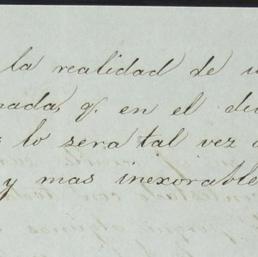 la realidad de
nada, q. en el
lo sera tal vez
y mas inexorable